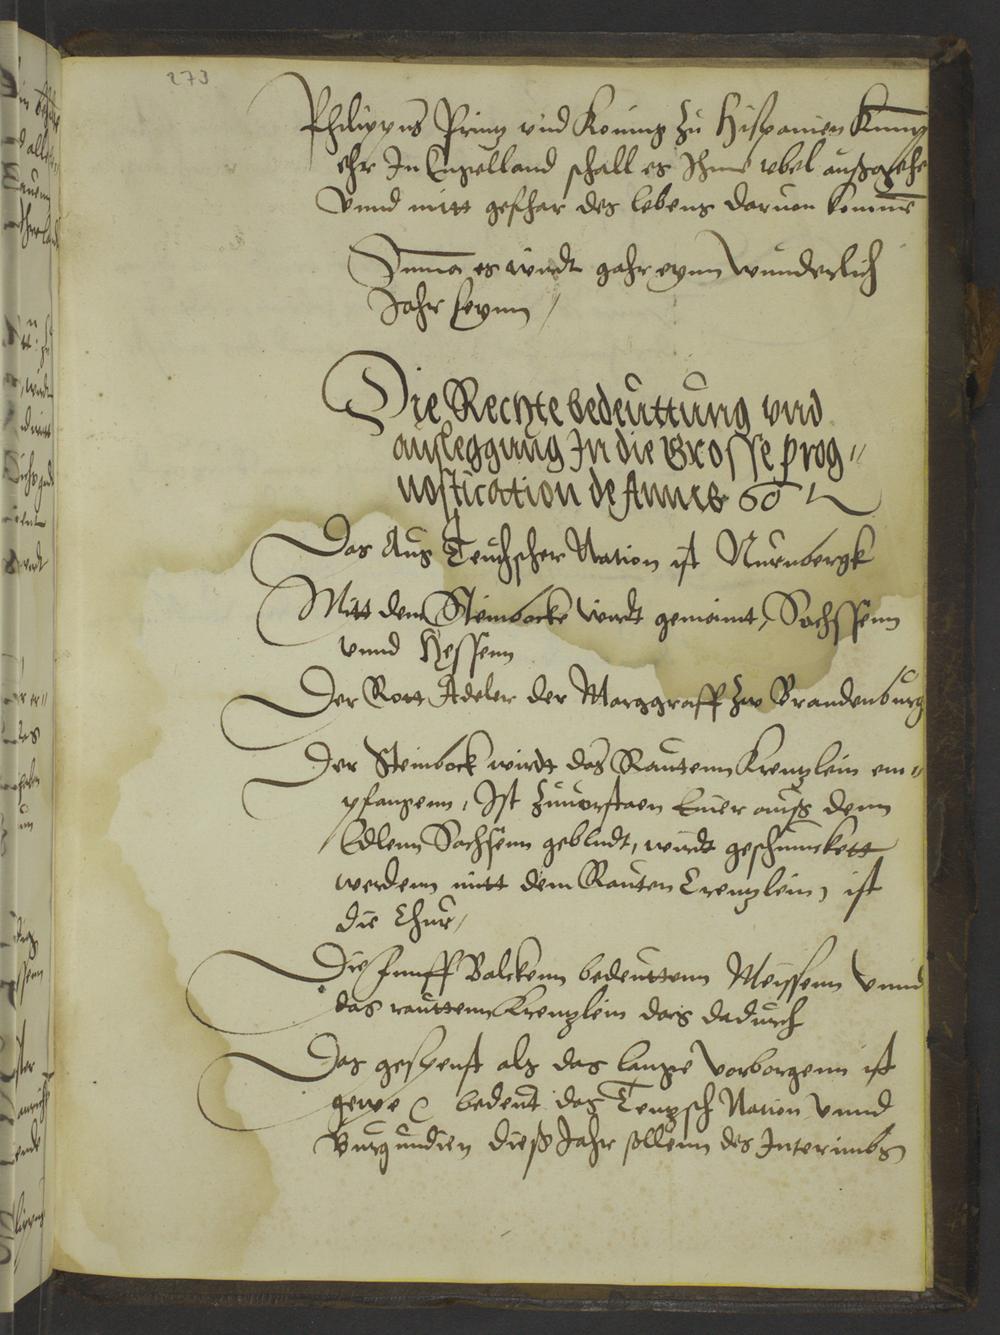 273
Philippus Printz vnd Konung zu Hispanien kumpt
ehr In Engelland schall es Ihme vbel außgehe
Vnnd mitt gefahar des lebens daruon komme
Summa es wirdt gahr eynn wunderlich
Jahr seynn /
Die Rechte bedeuttung vnd
ausleggung In die Grosse prog"
nostication de Anno 60
Das Aug Teutzscher Nation ist Nurnbergk
Mitt dem Steinbocke wirdt gemeint, Sachssenn
vnnd Hessenn
Der Rott Adeler der Marggraff zw Brandenburg
Der Steinbock wirdt das Rautenn Krentzlein em"
pfangenn, Ist zuuorstaen Einer auß denn
Edlenn Sachsenn gebludt, wirdt geschmuckett
werdenn mitt dem Rauten Crentzlein, ist
die Chur,
Die funff Balckenn bedeuttenn Meissenn vnnd
das rauttenn Krentzlein das dadurch
Das gespenst als das lange vorborgenn ist
gewe bedeut das Teutzsch Nation vnnd
Burgundien dieß Jahr sollenn des Interimbs